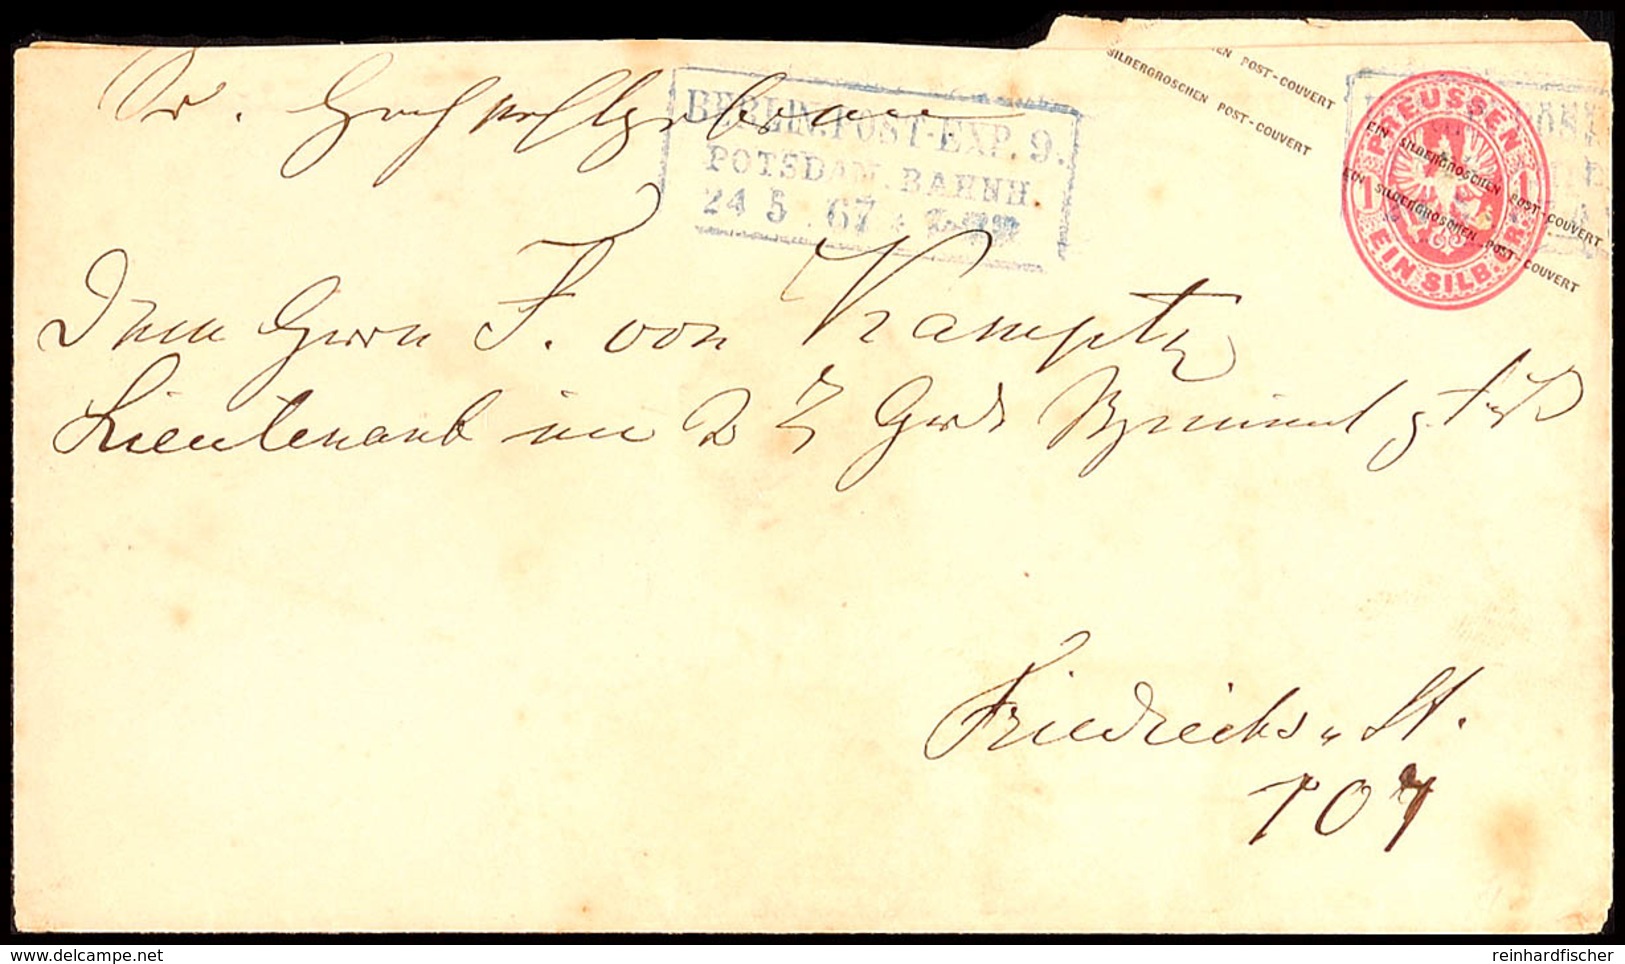 Sr. Hochwohlgeboren
BERLIN.POST-EXP. 9.
POTSDAM. BAHNH.
24 5 . 67
EN POST-COUVERT
SILBERGROSCHEN POST-COUVERT
EIN SILBERGROSCHEN POST-COUVERT
EIN SILBERGROSCHEN POST-COUVERT
PREUSSEN
1 1
EIN SILB. GR.
Dem Herrn F. von Kamptz
Lieutenant im 2 Grd Regiment z. Fuß
Friedrichs St.
107
reinhardfischer